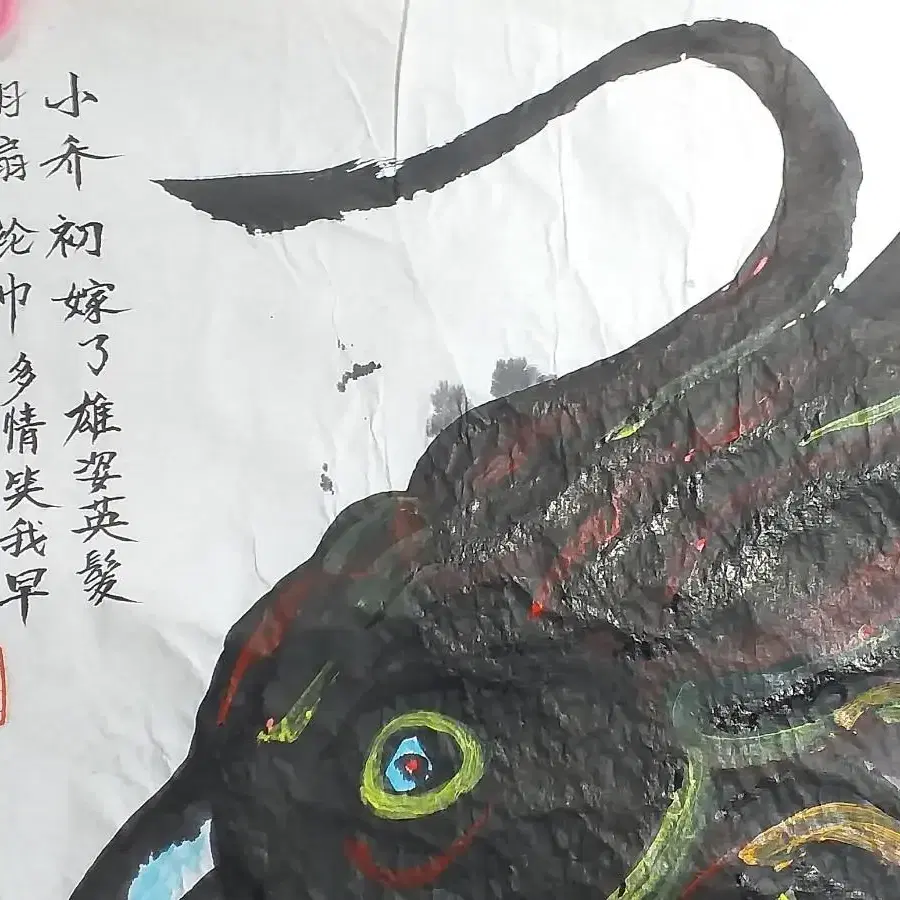 小乔初嫁了雄姿英髮
扇纶巾多情笑我早